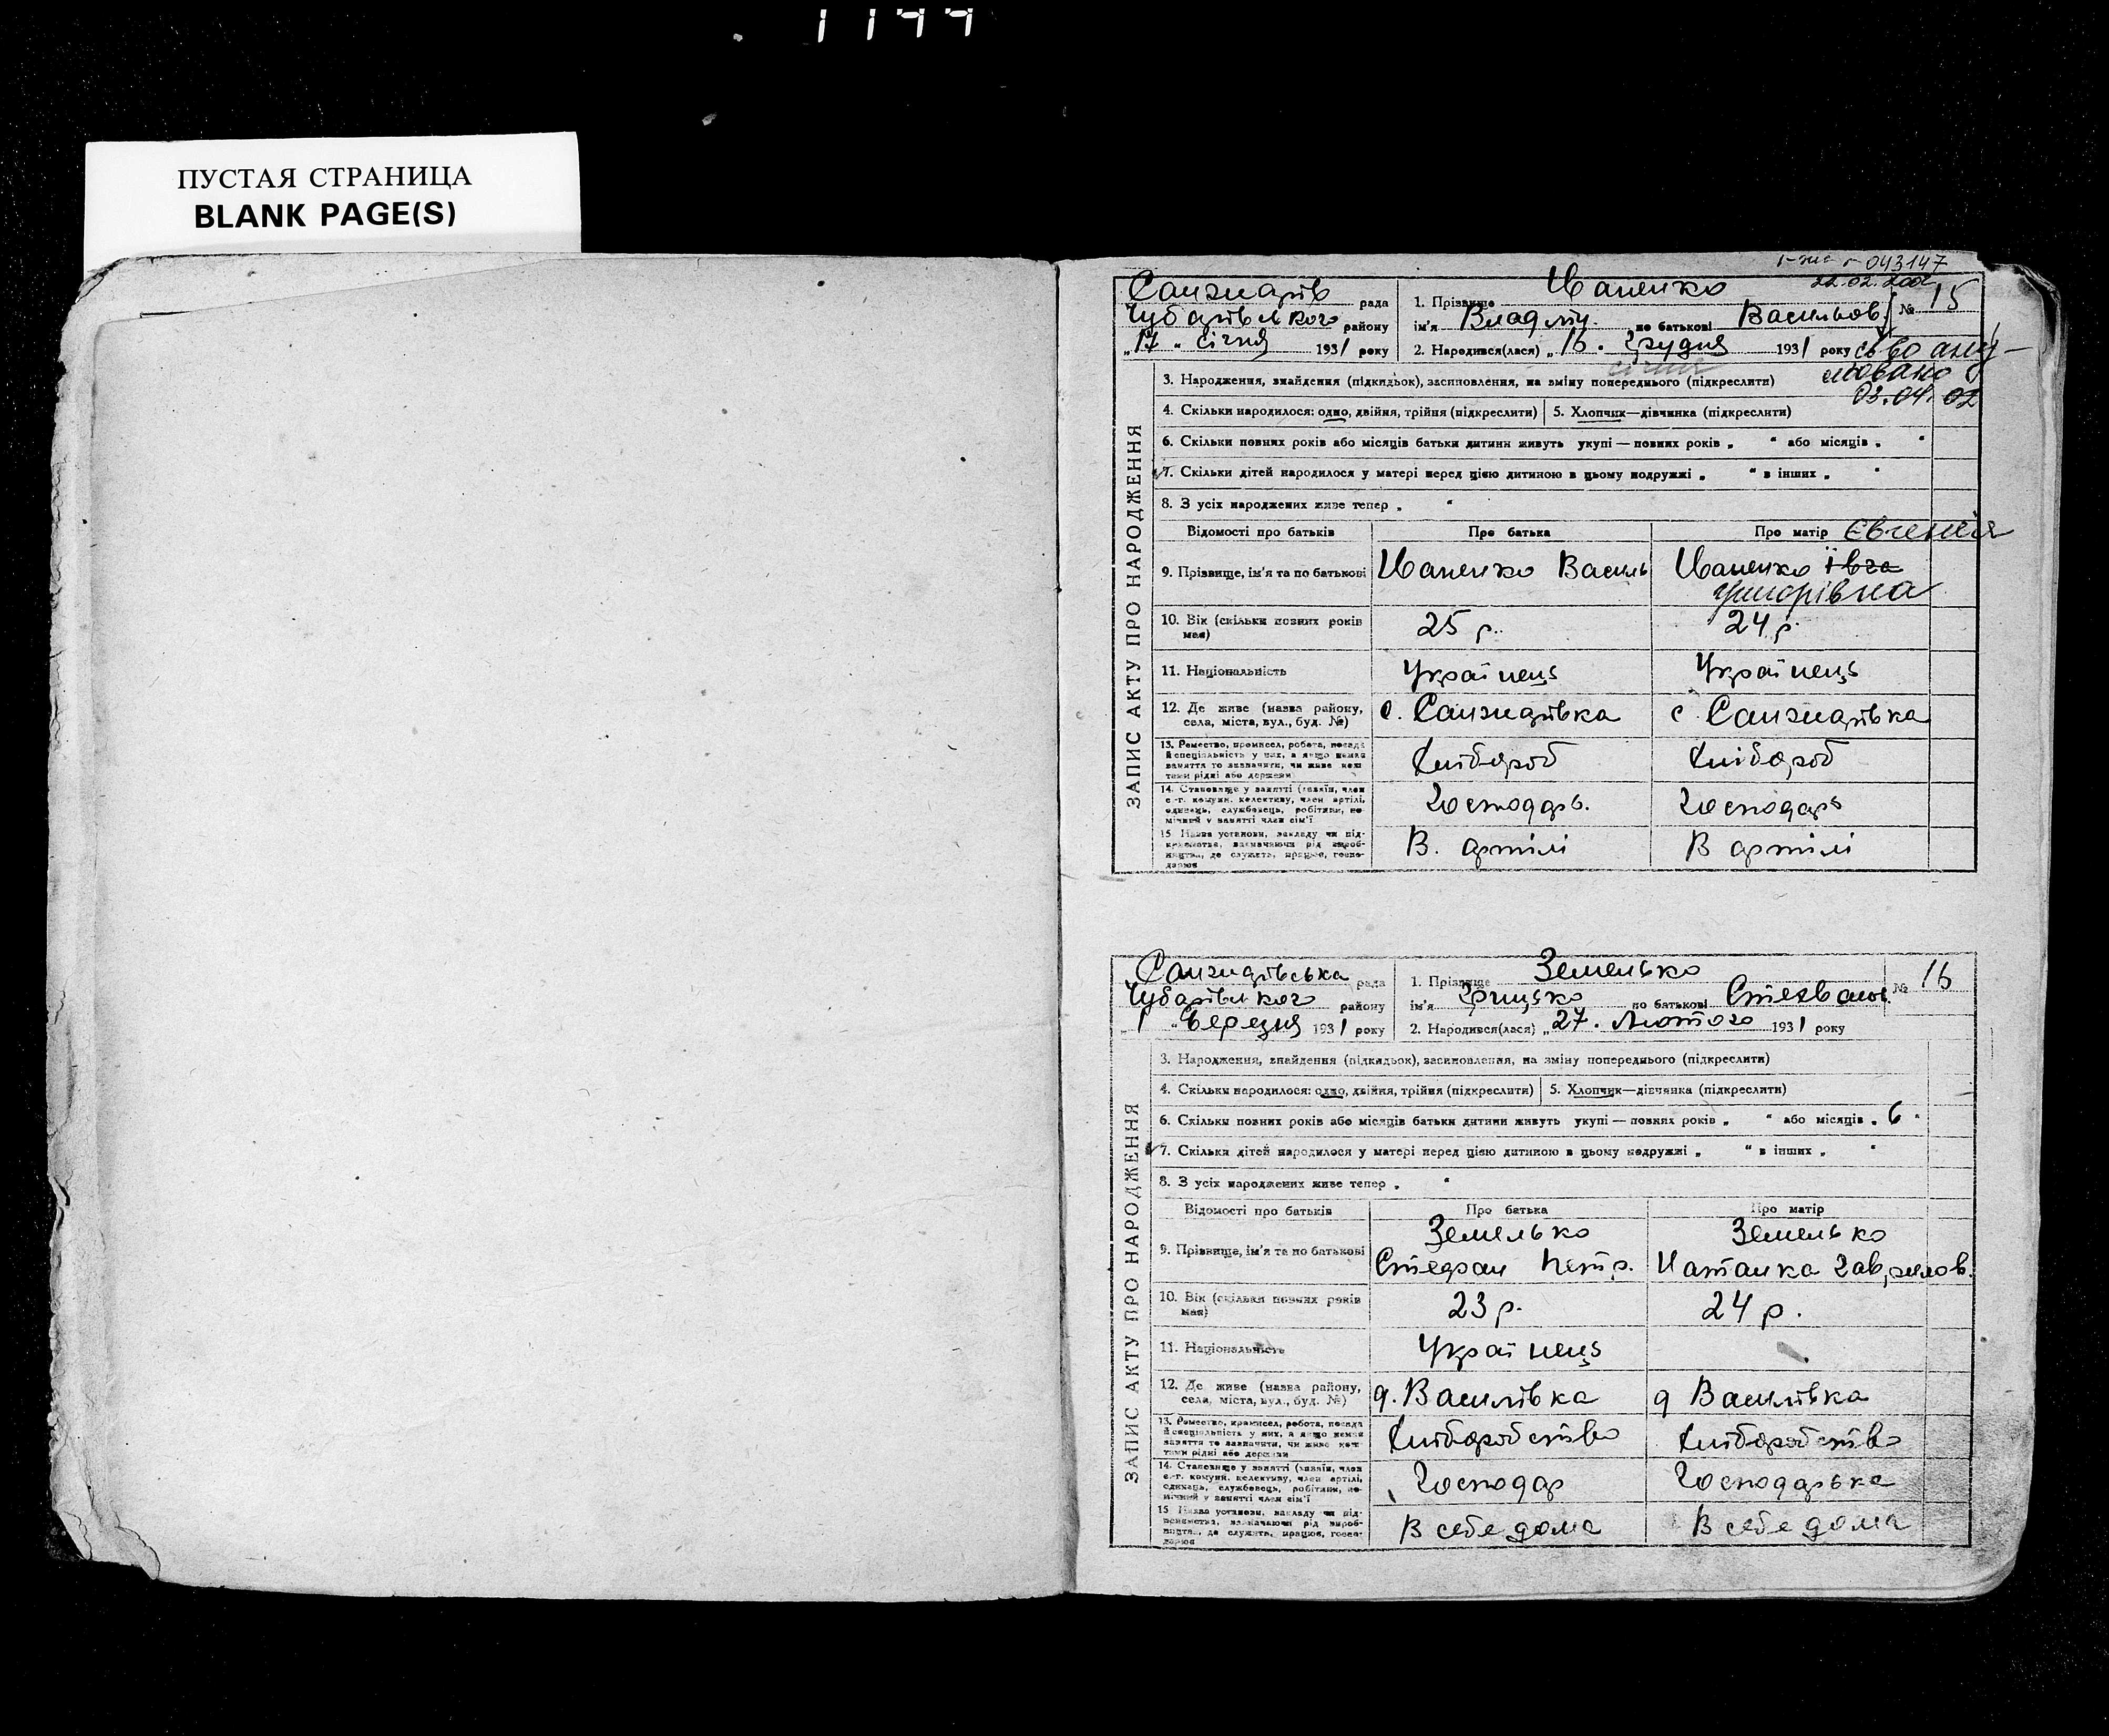 1199
ПУСТАЯ СТРАНИЦА
BLANK PAGE(S)
043147
22.02.2002
рада
Чубарівського району
"17" січня 1931 року
1. Прізвище Іваненко
ім'я Владмін. по батькові Васильов.
№ 15
2. Народився(лася) "16." грудня 1931 року
січня
св во анну-
льовано
03.04.02
ЗАПИС АКТУ ПРО НАРОДЖЕННЯ
3. Народження, знайдення (підкидьок), засиновлення, на зміну попереднього (підкреслити)
4. Скільки народилося: одно, двійня, трійня (підкреслити)
5. Хлопчик—дівчинка (підкреслити)
6. Скільки повних років або місяців батьки дитини живуть укупі — повних років " " або місяців " "
7. Скільки дітей народилося у матері перед цією дитиною в цьому подружжі " " в інших " "
8. З усіх народжених живе тепер " "
Відомості про батьків
Про батька
Про матір Євгенія
9. Прізвище, ім'я та по батькові
Іваненко Василь
Іваненко Ївга
Григорівна
10. Вік (скільки повних років має)
25 р.
24 р.
11. Національність
Українець
Українець
12. Де живе (назва району, села, міста, вул., буд. №)
с. Санжарівка
с Санжарівка
13. Ремество, промисел, робота, посада й спеціальність у них, а якщо немає заняття то зазначити, чи живе коштами рідні або держави
Хлібороб
Хлібороб
14. Становище у занятті (хазяїн, член с.-г. комуни, колективу, член артілі, одинець, службовець, робітник, помічний у занятті член сім'ї
Господарь.
Господарь
15 Назва установи, закладу чи підприємства, зазначаючи рід виробництва, де служить, працює, господарює
В. артілі
В артілі
Санжарівська рада
Чубарівського району
"1" Березня 1931 року
1. Прізвище Земелько
ім'я Грицько по батькові
№ 16
2. Народився(лася) "27." Лютого 1931 року
ЗАПИС АКТУ ПРО НАРОДЖЕННЯ
3. Народження, знайдення (підкидьок), засиновлення, на зміну попереднього (підкреслити)
4. Скільки народилося: одно, двійня, трійня (підкреслити)
5. Хлопчик—дівчинка (підкреслити)
6. Скільки повних років або місяців батьки дитини живуть укупі — повних років " " або місяців " 6 "
7. Скільки дітей народилося у матері перед цією дитиною в цьому подружжі " " в інших " "
8. З усіх народжених живе тепер " "
Відомості про батьків
Про батька
Про матір
9. Прізвище, ім'я та по батькові
Земелько
Стефан Петр.
Земелько
Наталка Гаврилов.
10. Вік (скільки повних років має)
23 р.
24 р.
11. Національність
Українець
12. Де живе (назва району, села, міста, вул., буд. №)
д. Василівка
д Василівка
13. Ремество, промисел, робота, посада й спеціальність у них, а якщо немає заняття то зазначити, чи живе коштами рідні або держави
Хліборобство
Хліборобство
14. Становище у занятті (хазяїн, член с.-г. комуни, колективу, член артілі, одинець, службовець, робітник, помічний у занятті член сім'ї
Господар
Господарька
15 Назва установи, закладу чи підприємства, зазначаючи рід виробництва, де служить, працює, господарює
В себе дома
В себе дома